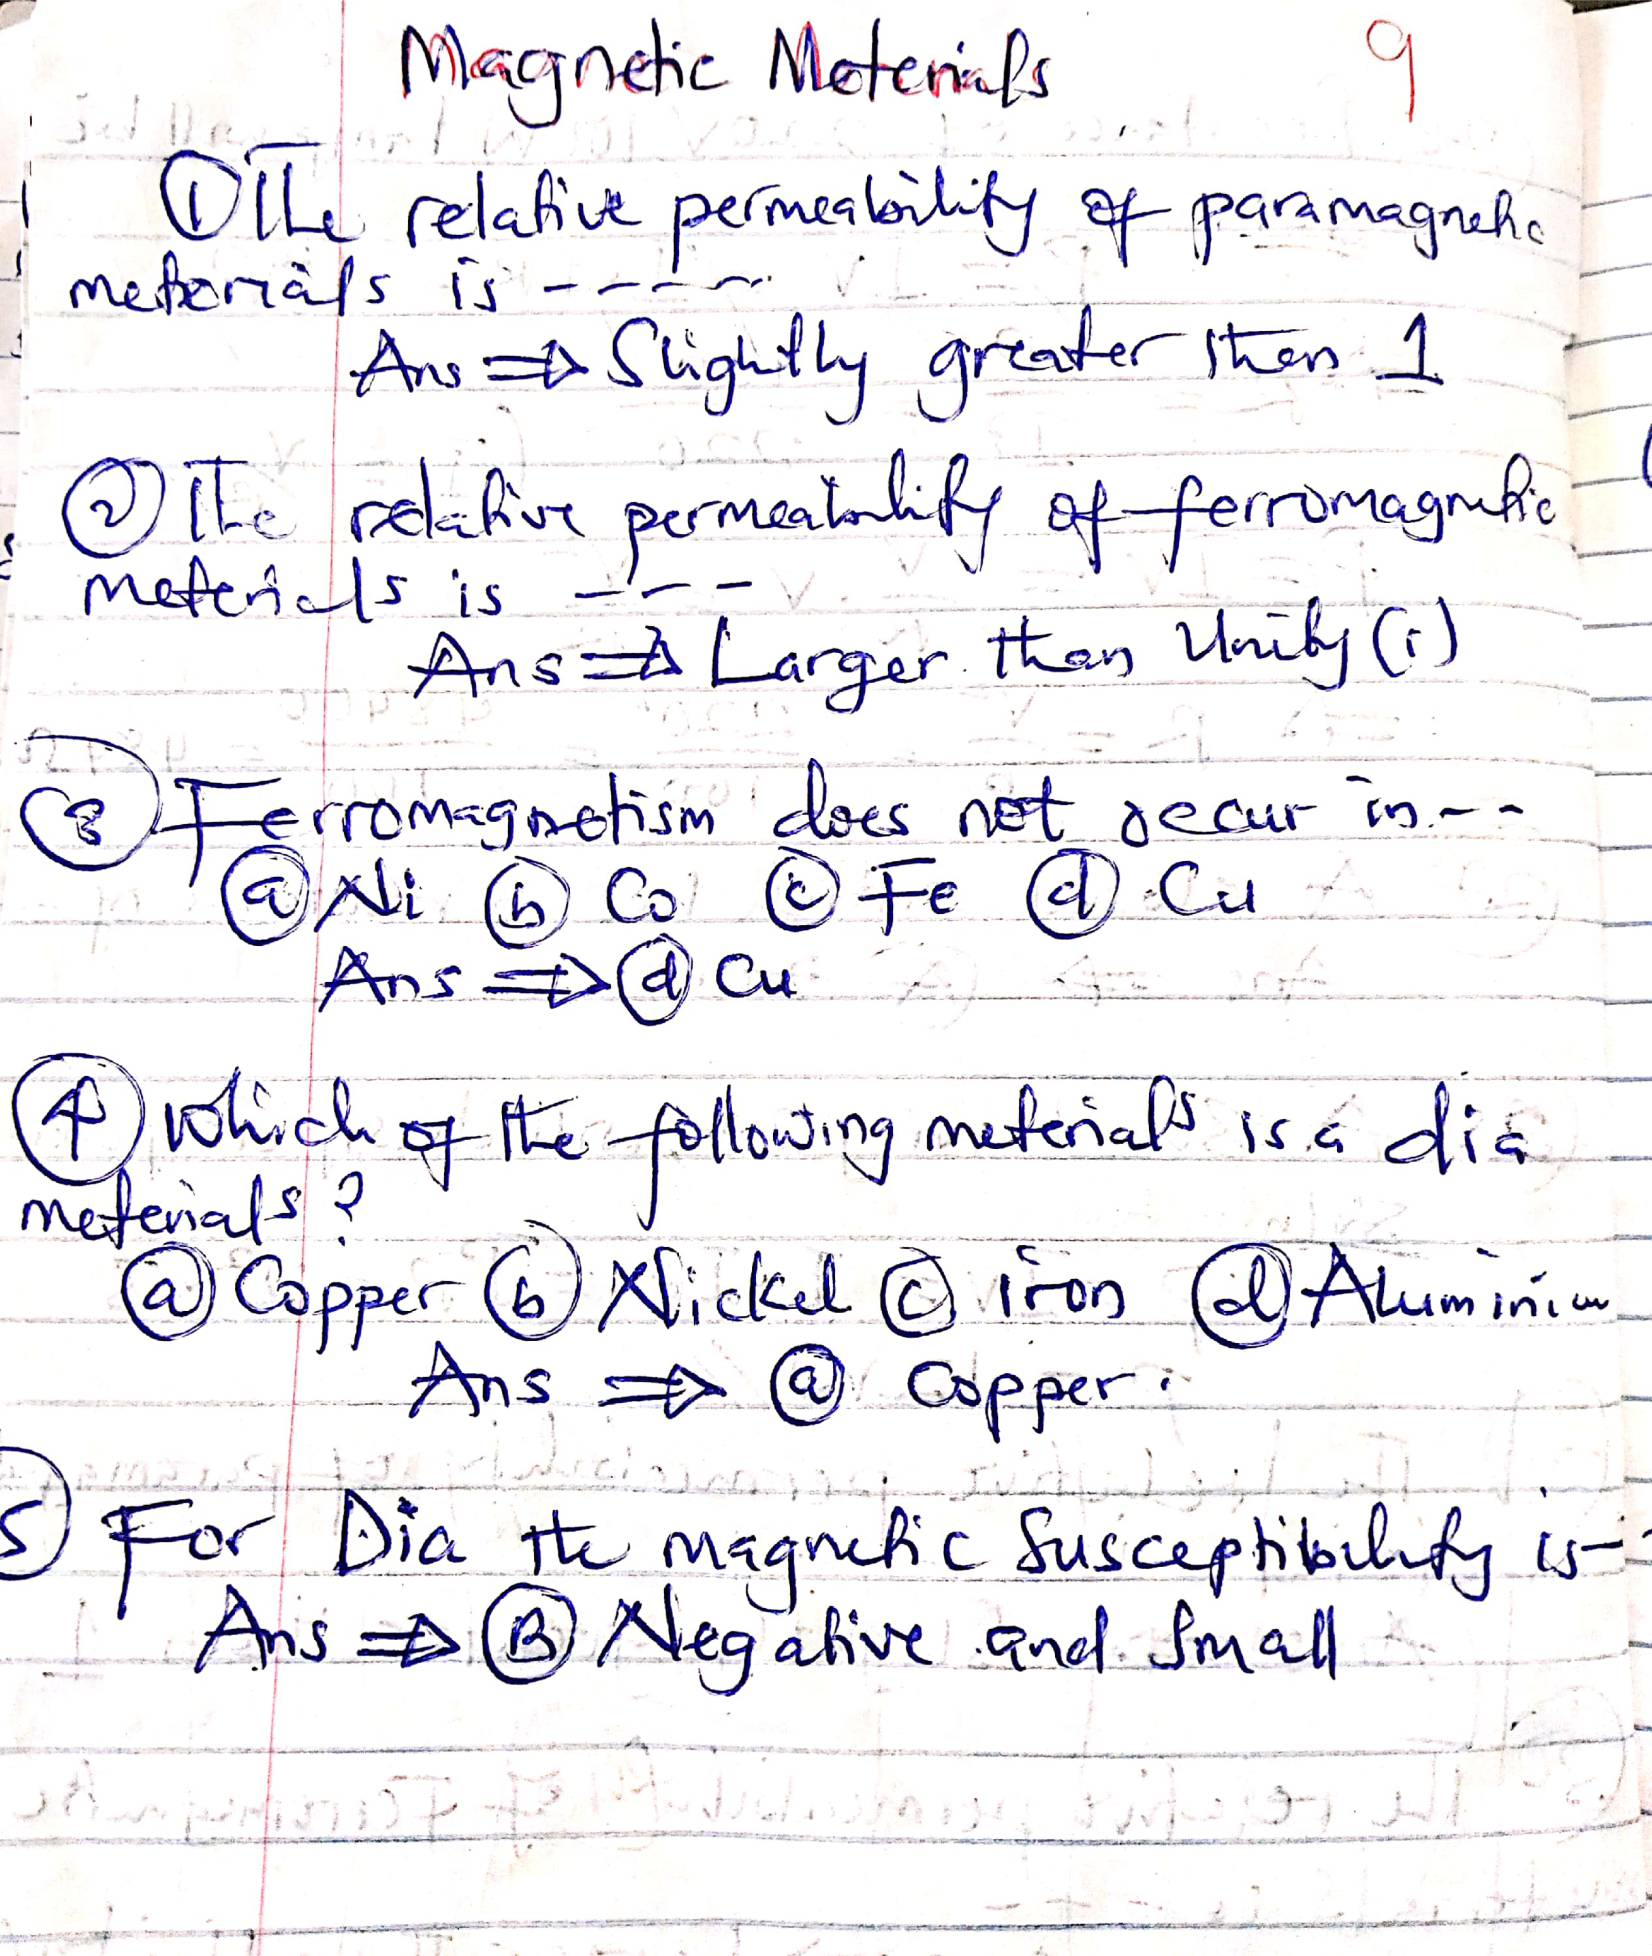 Magnetic Materials 9
① The relative permeability of paramagnetic
meterials is -----
Ans ⇒ Slightly greater than 1
② The relative permeability of ferromagnetic
meterials is ----
Ans ⇒ Larger than Unity (1)
③ Ferromagnetism does not occur in --
ⓐ Ni ⓑ Co ⓒ Fe ⓓ Cu
Ans ⇒ ⓓ Cu
④ which of the following meterials is a dia
meterials?
ⓐ Copper ⓑ Nickel ⓒ iron ⓓ Aluminium
Ans ⇒ ⓐ Copper.
5) For Dia the magnetic Susceptibility is -
Ans ⇒ Ⓑ Negative and Small